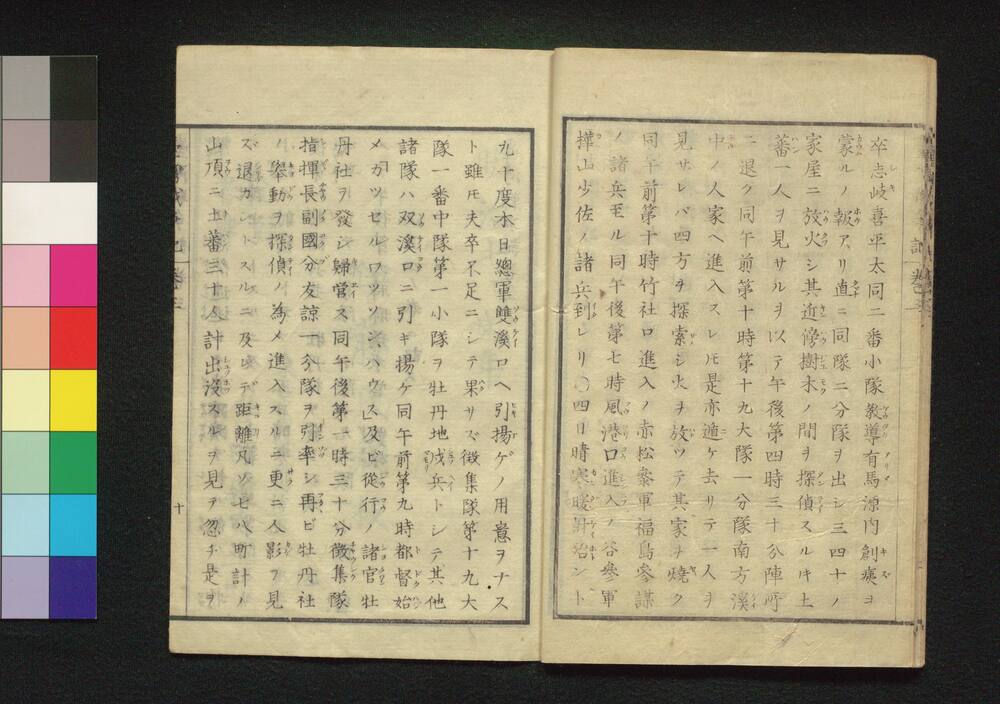 卒志岐喜平太同二番小隊教導有馬源内創痍ヲ
蒙ルノ報アリ直ニ同隊二分隊ヲ出シ三四十ノ
家屋ニ放火シ其近傍樹木ノ間ヲ探偵スルキ土
蕃一人ヲ見サルヲ以テ午後第四時三十分陣所
ニ退ク同午前第十時第十九大隊一分隊南方溪
中ノ人家ヘ進入スレ𪜈是亦遁ケ去リテ一人ヲ
見サレバ四方ヲ探索シ火ヲ放ツテ其家ヲ燒ク
同午前第十時竹社口進入ノ赤松參軍福島參謀
ノ諸兵至ル同午後第七時風港口進入ノ谷參軍
樺山少佐ノ諸兵到レリ○四日晴寒暖計殆ント
九十度本日總軍雙溪口ヘ引揚ゲノ用意ヲナス
ト雖モ夫卒不足ニシテ果サズ徴集隊第十九大
隊一番中隊第一小隊ヲ牡丹地戍兵トシテ其他
諸隊ハ双溪口ニ引キ揚ケ同午前第九時都督始
メカツセルワツソンハウス及ビ從行ノ諸官牡
丹社ヲ發シ歸營ス同午後第一時三十分徴集隊
指揮長副國分友諒一分隊ヲ引率シ再ビ牡丹社
ノ擧動ヲ探偵ノ為メ進入スルニ更ニ人影ヲ見
ズ退カントスルニ及レデ距離凡ソ七八町計ノ
山頂ニ土蕃三十人計出沒スルヲ見ヲ忽チ是ヲ
十